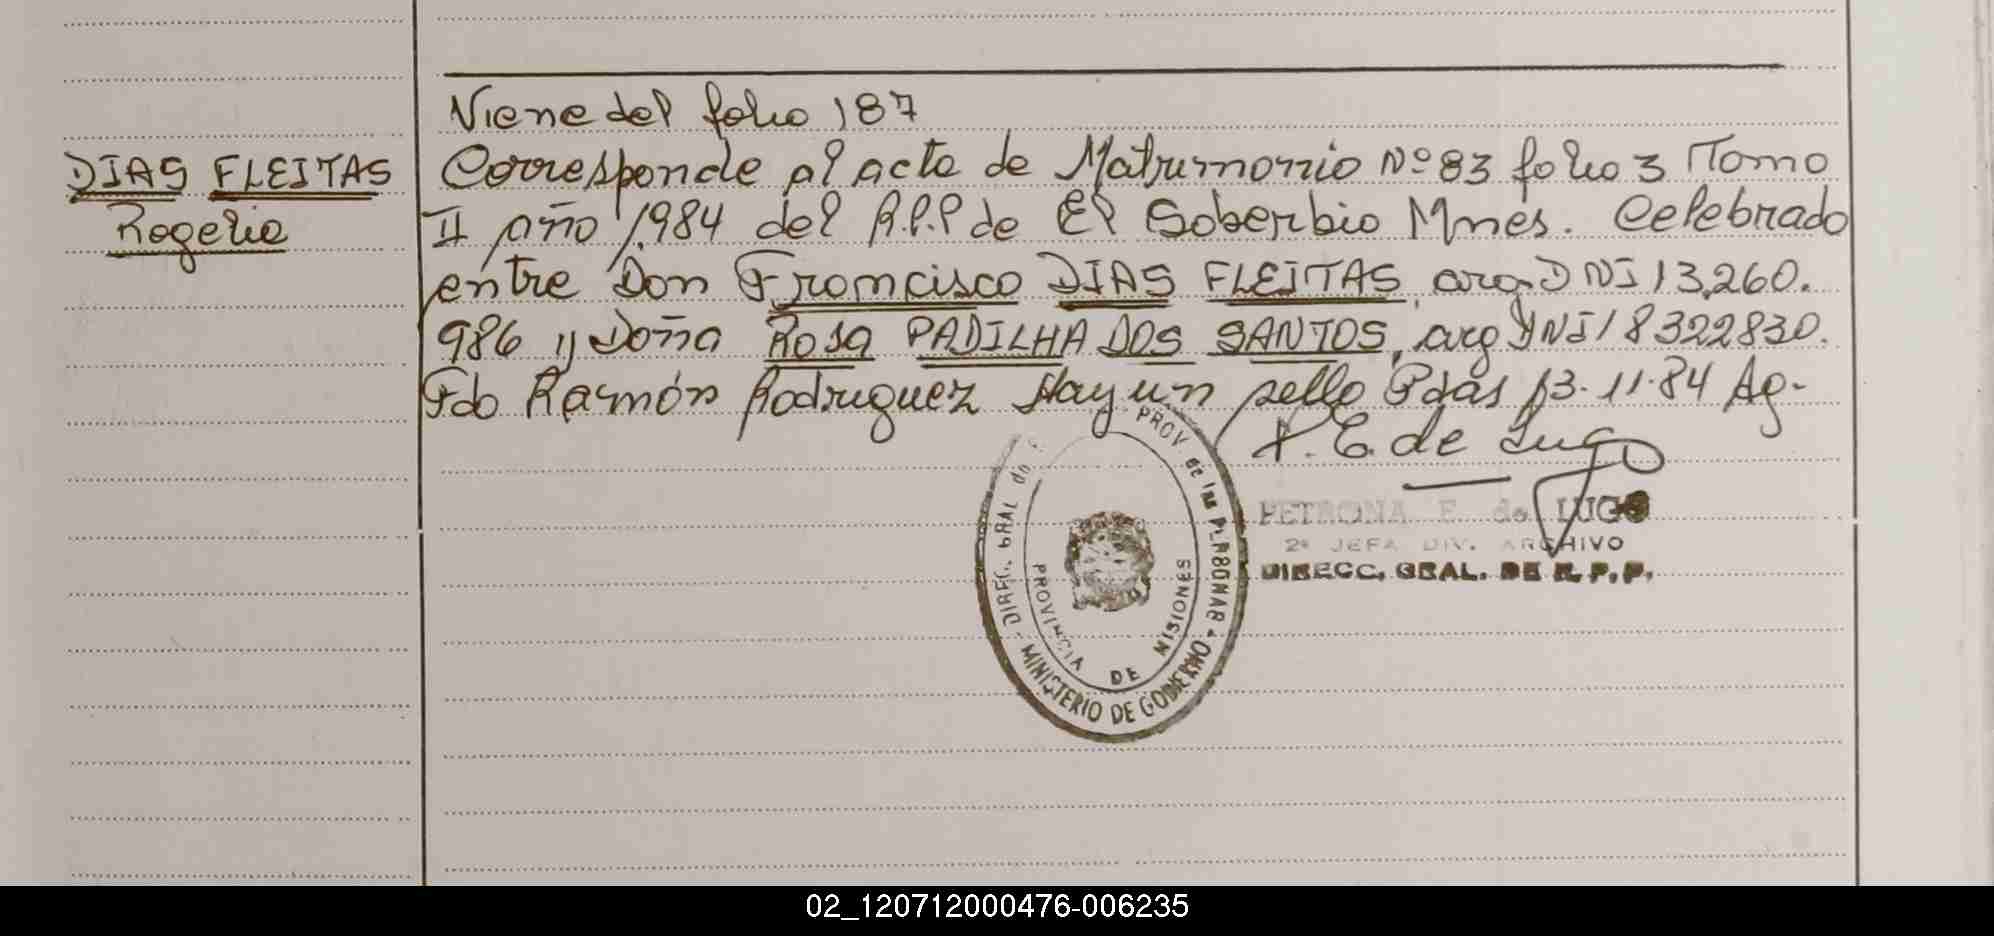 Viene del folio 187
DIAS FLEITAS
Rogelio
Corresponde al acta de Matrimonio Nº 83 folio 3 Tomo
II año 1.984 del R.P.P de El Soberbio Mnes. Celebrado
entre Don Francisco DIAS FLEITAS, arg. DNI 13.260.
986 y Doña ROSA PADILHA DOS SANTOS, arg DNI 18322830.
Fdo Ramón Rodriguez Hay un sello Pdas 13.11.84 Ag.
P. E. de Lugo
PETRONA E. de LUGO
2ª JEFA DIV. ARCHIVO
DIRECC. GRAL. DE R.P.P.
DIREC. GRAL de PROV de las PERSONAS
MINISTERIO DE GOBIERNO
PROVINCIA DE MISIONES
02_120712000476-006235